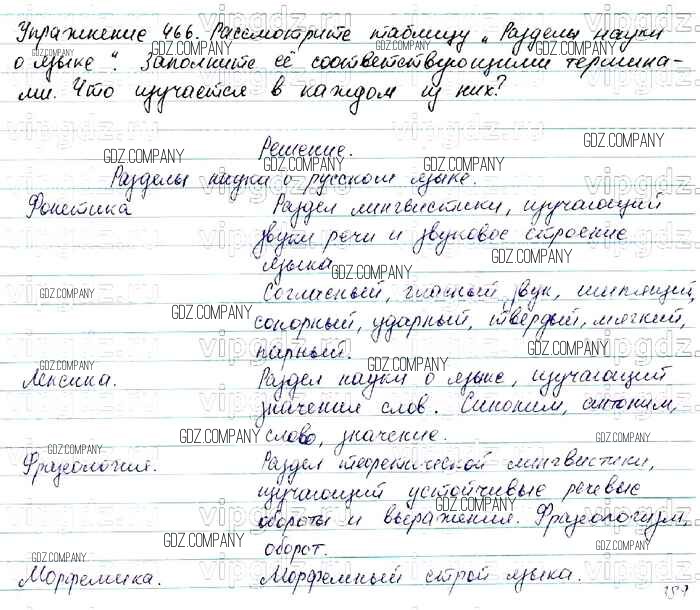 Упражнение 466. Рассмотрите таблицу „Разделы науки
о языке". Заполните её соответствующими термина-
ми. Что изучается в каждом из них?
Решение.
Разделы науки о русском языке.
Фонетика Раздел лингвистики, изучающий
звуки речи и звуковое строение
языка.
Согласный, гласный, звук, шипящий,
сонорный, ударный, твёрдый, мягкий,
парный.
Лексика. Раздел науки о языке, изучающий
значения слов. Синоним, антоним,
слово, значение.
Фразеология. Раздел теоретической лингвистики,
изучающий устойчивые речевые
обороты и выражения. Фразеологизм,
оборот.
Морфемика. Морфемный строй языка.
GDZ.COMPANY
vipgdz.ru